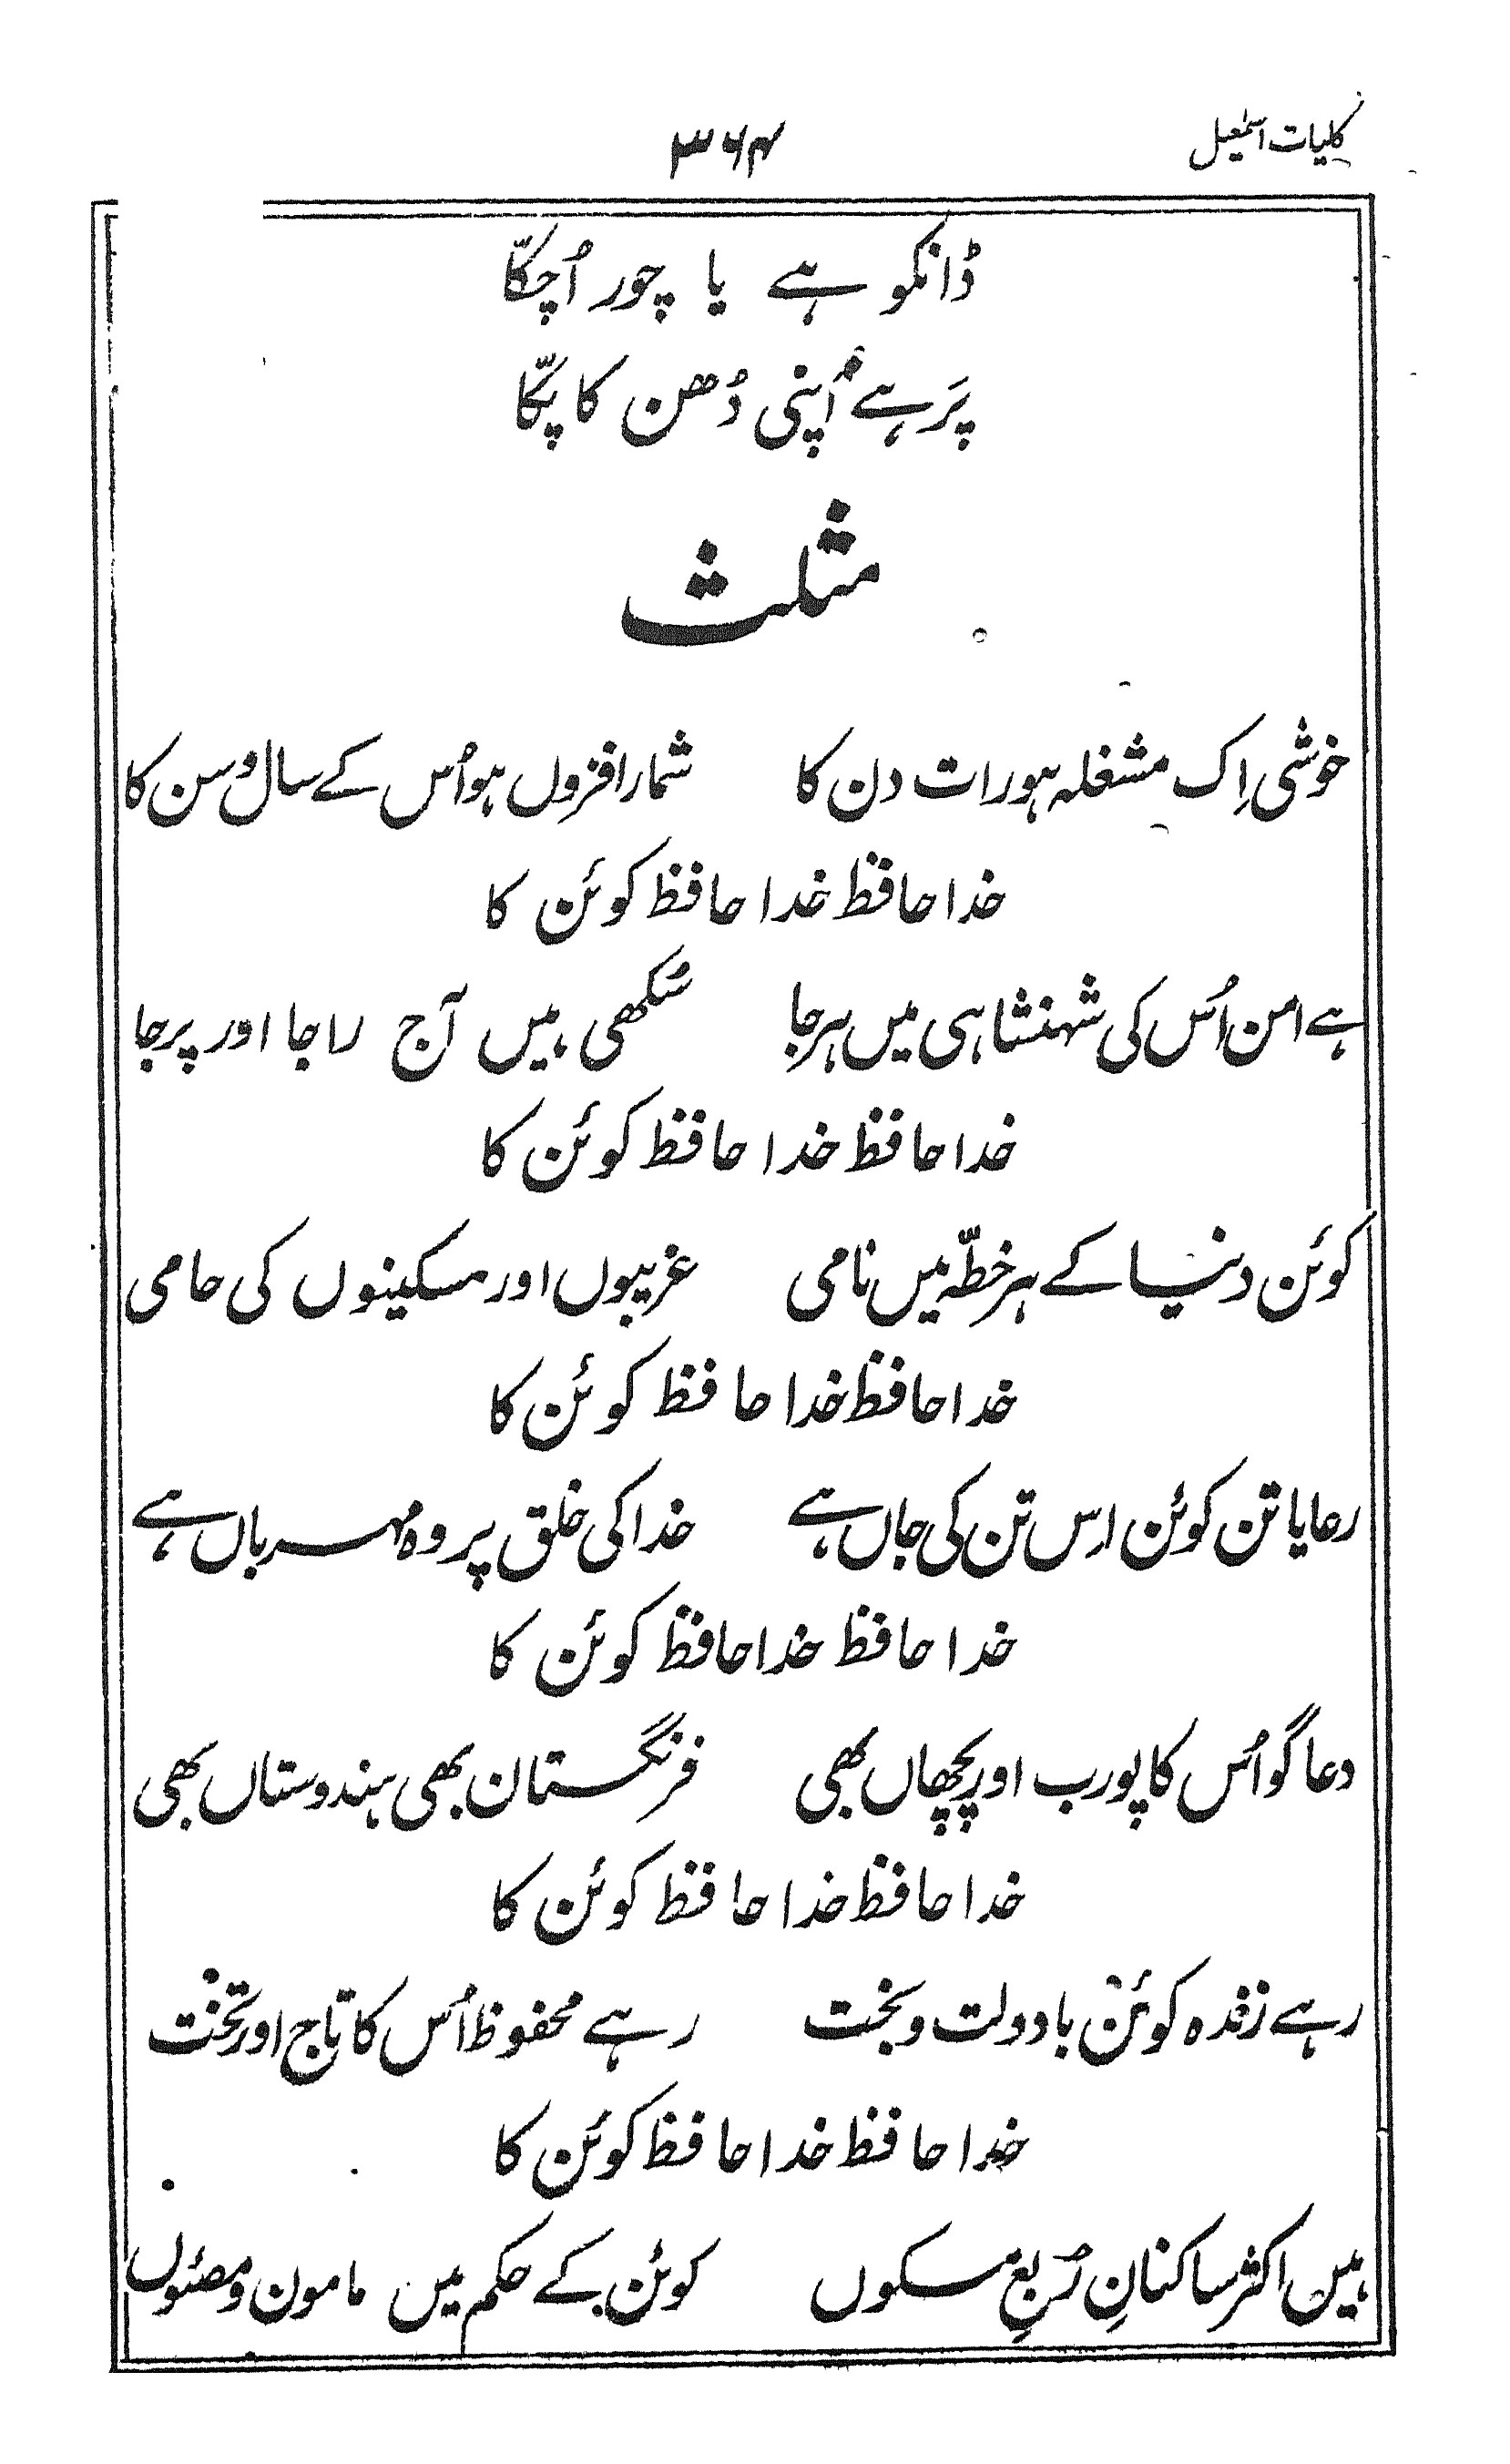 کلیات اسمٰعیل ۳۶۴
ڈانکو ہے یا چور اُچکّا
پَر ہے اپنی دُھن کا پکّا
مثلث
خوشی اِک مشغلہ ہو رات دن کا شمار افزوں ہو اُس کے سال و سن کا
خدا حافظ خدا حافظ کوئن کا
ہے امن اُس کی شہنشاہی میں ہر جا سُکھی ہیں آج راجا اور پرجا
خدا حافظ خدا حافظ کوئن کا
کوئن دنیا کے ہر خطّہ میں نامی غریبوں اور مسکینوں کی حامی
خدا حافظ خدا حافظ کوئن کا
رعایا تن کوئن اِس تن کی جاں ہے خدا کی خلق پر وہ مہرباں ہے
خدا حافظ خدا حافظ کوئن کا
دعا گو اُس کا پورب اور پچھاں بھی فرنگستان بھی ہندوستاں بھی
خدا حافظ خدا حافظ کوئن کا
رہے زندہ کوئن با دولت و بخت رہے محفوظ اُس کا تاج اور تخت
خدا حافظ خدا حافظ کوئن کا
ہیں اکثر ساکنانِ رُبعِ مسکوں کوئن کے حکم میں مامون و مصئوں